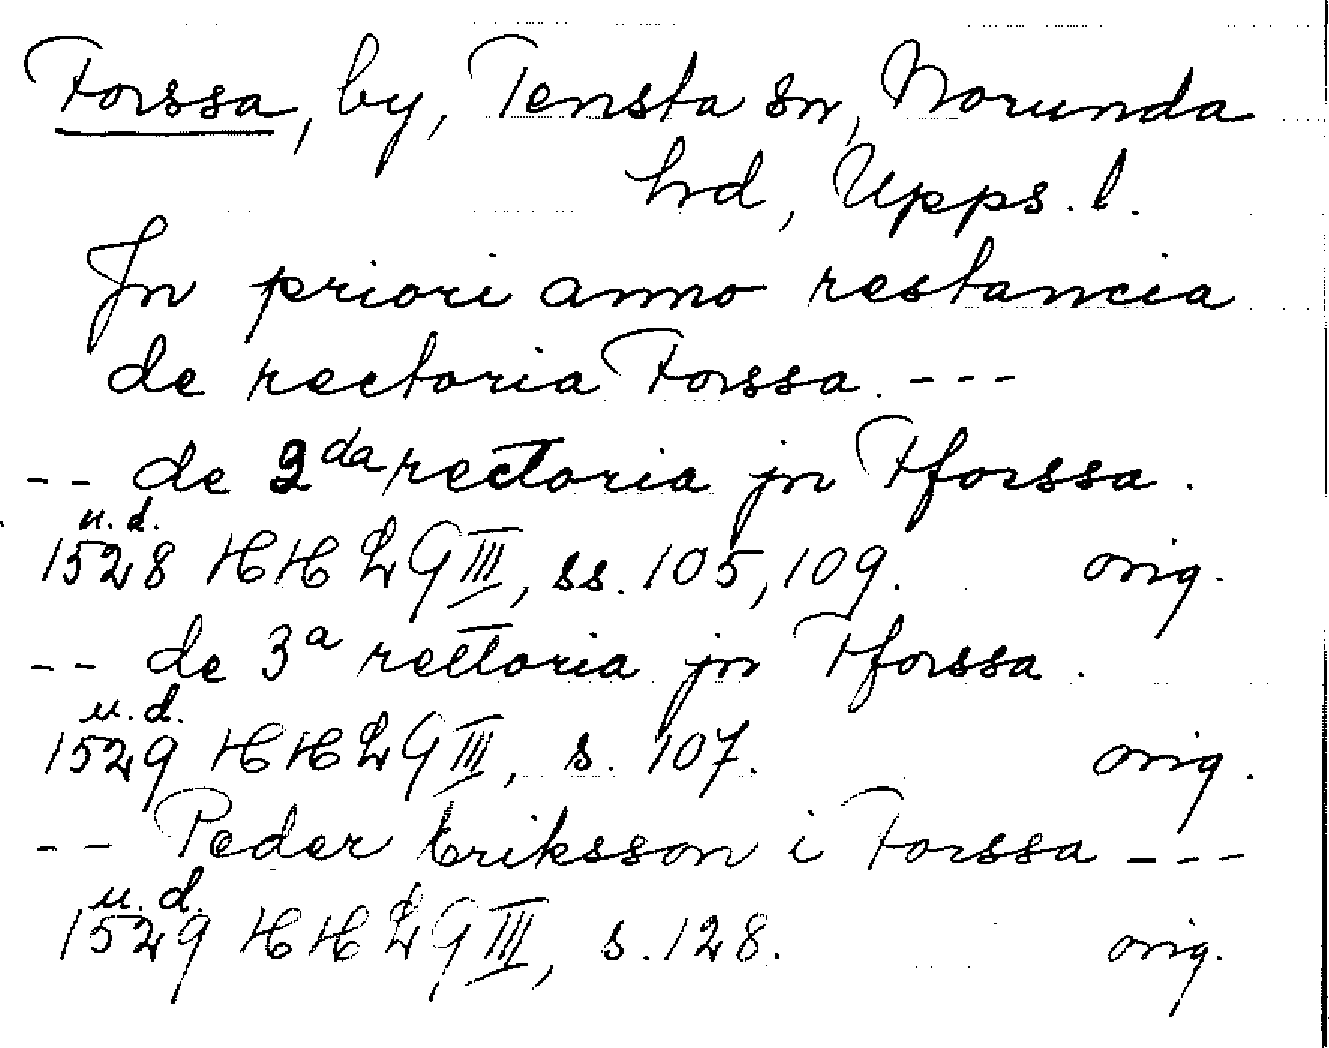 Forssa, by, Tensta sn, Norunda
hrd, Upps. l.
Jn priori anno restancia
de rectoria Forssa. ---
-- de 2da rectoria jn Fforssa.
u. d.
1528 HH LG III, ss. 105, 109. orig.
-- de 3a rectoria jn Fforssa.
u. d.
1529 HH LG III, s. 107. orig.
-- Peder Eriksson i Forssa ---
u. d.
1529 HH LG III, s. 128. orig.